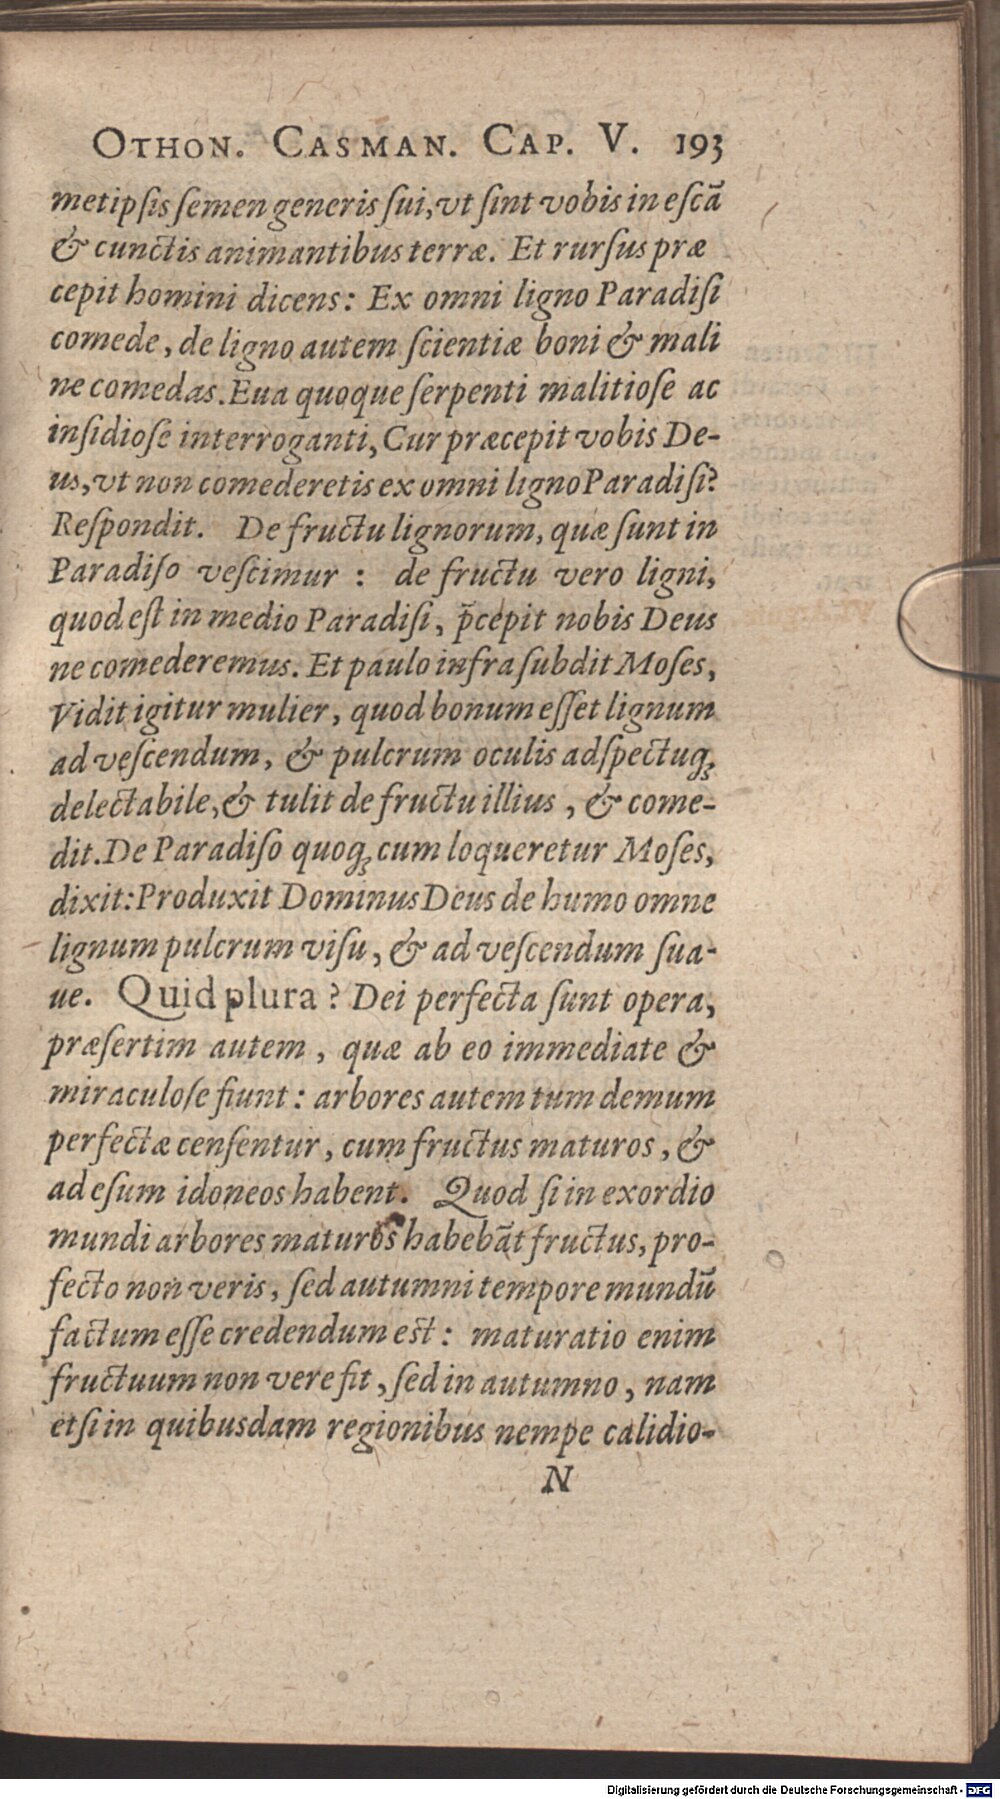 OTHON. CASMAN. CAP. V. 193
metipsis semen generis sui, vt sint vobis in escā
& cunctis animantibus terræ. Et rursus præ
cepit homini dicens: Ex omni ligno Paradisi
comede, de ligno autem scientiæ boni & mali
ne comedas. Eua quoque serpenti malitiose ac
insidiose interroganti, Cur præcepit vobis De-
us, vt non comederetis ex omni ligno Paradisi?
Respondit. De fructu lignorum, quæ sunt in
Paradiso vescimur : de fructu vero ligni,
quod est in medio Paradisi, p̄cepit nobis Deus
ne comederemus. Et paulo infra subdit Moses,
Vidit igitur mulier, quod bonum esset lignum
ad vescendum, & pulcrum oculis adspectuq;
delectabile, & tulit de fructu illius, & come-
dit. De Paradiso quoq; cum loqueretur Moses,
dixit: Produxit Dominus Deus de humo omne
lignum pulcrum visu, & ad vescendum sua-
ue. Quid plura? Dei perfecta sunt opera,
præsertim autem, quæ ab eo immediate &
miraculose fiunt: arbores autem tum demum
perfectæ censentur, cum fructus maturos, &
ad esum idoneos habent. Quod si in exordio
mundi arbores maturos habebāt fructus, pro-
fecto non veris, sed autumni tempore mundū
factum esse credendum est: maturatio enim
fructuum non vere fit, sed in autumno, nam
etsi in quibusdam regionibus nempe calidio-
N
Digitalisierung gefördert durch die Deutsche Forschungsgemeinschaft - DFG